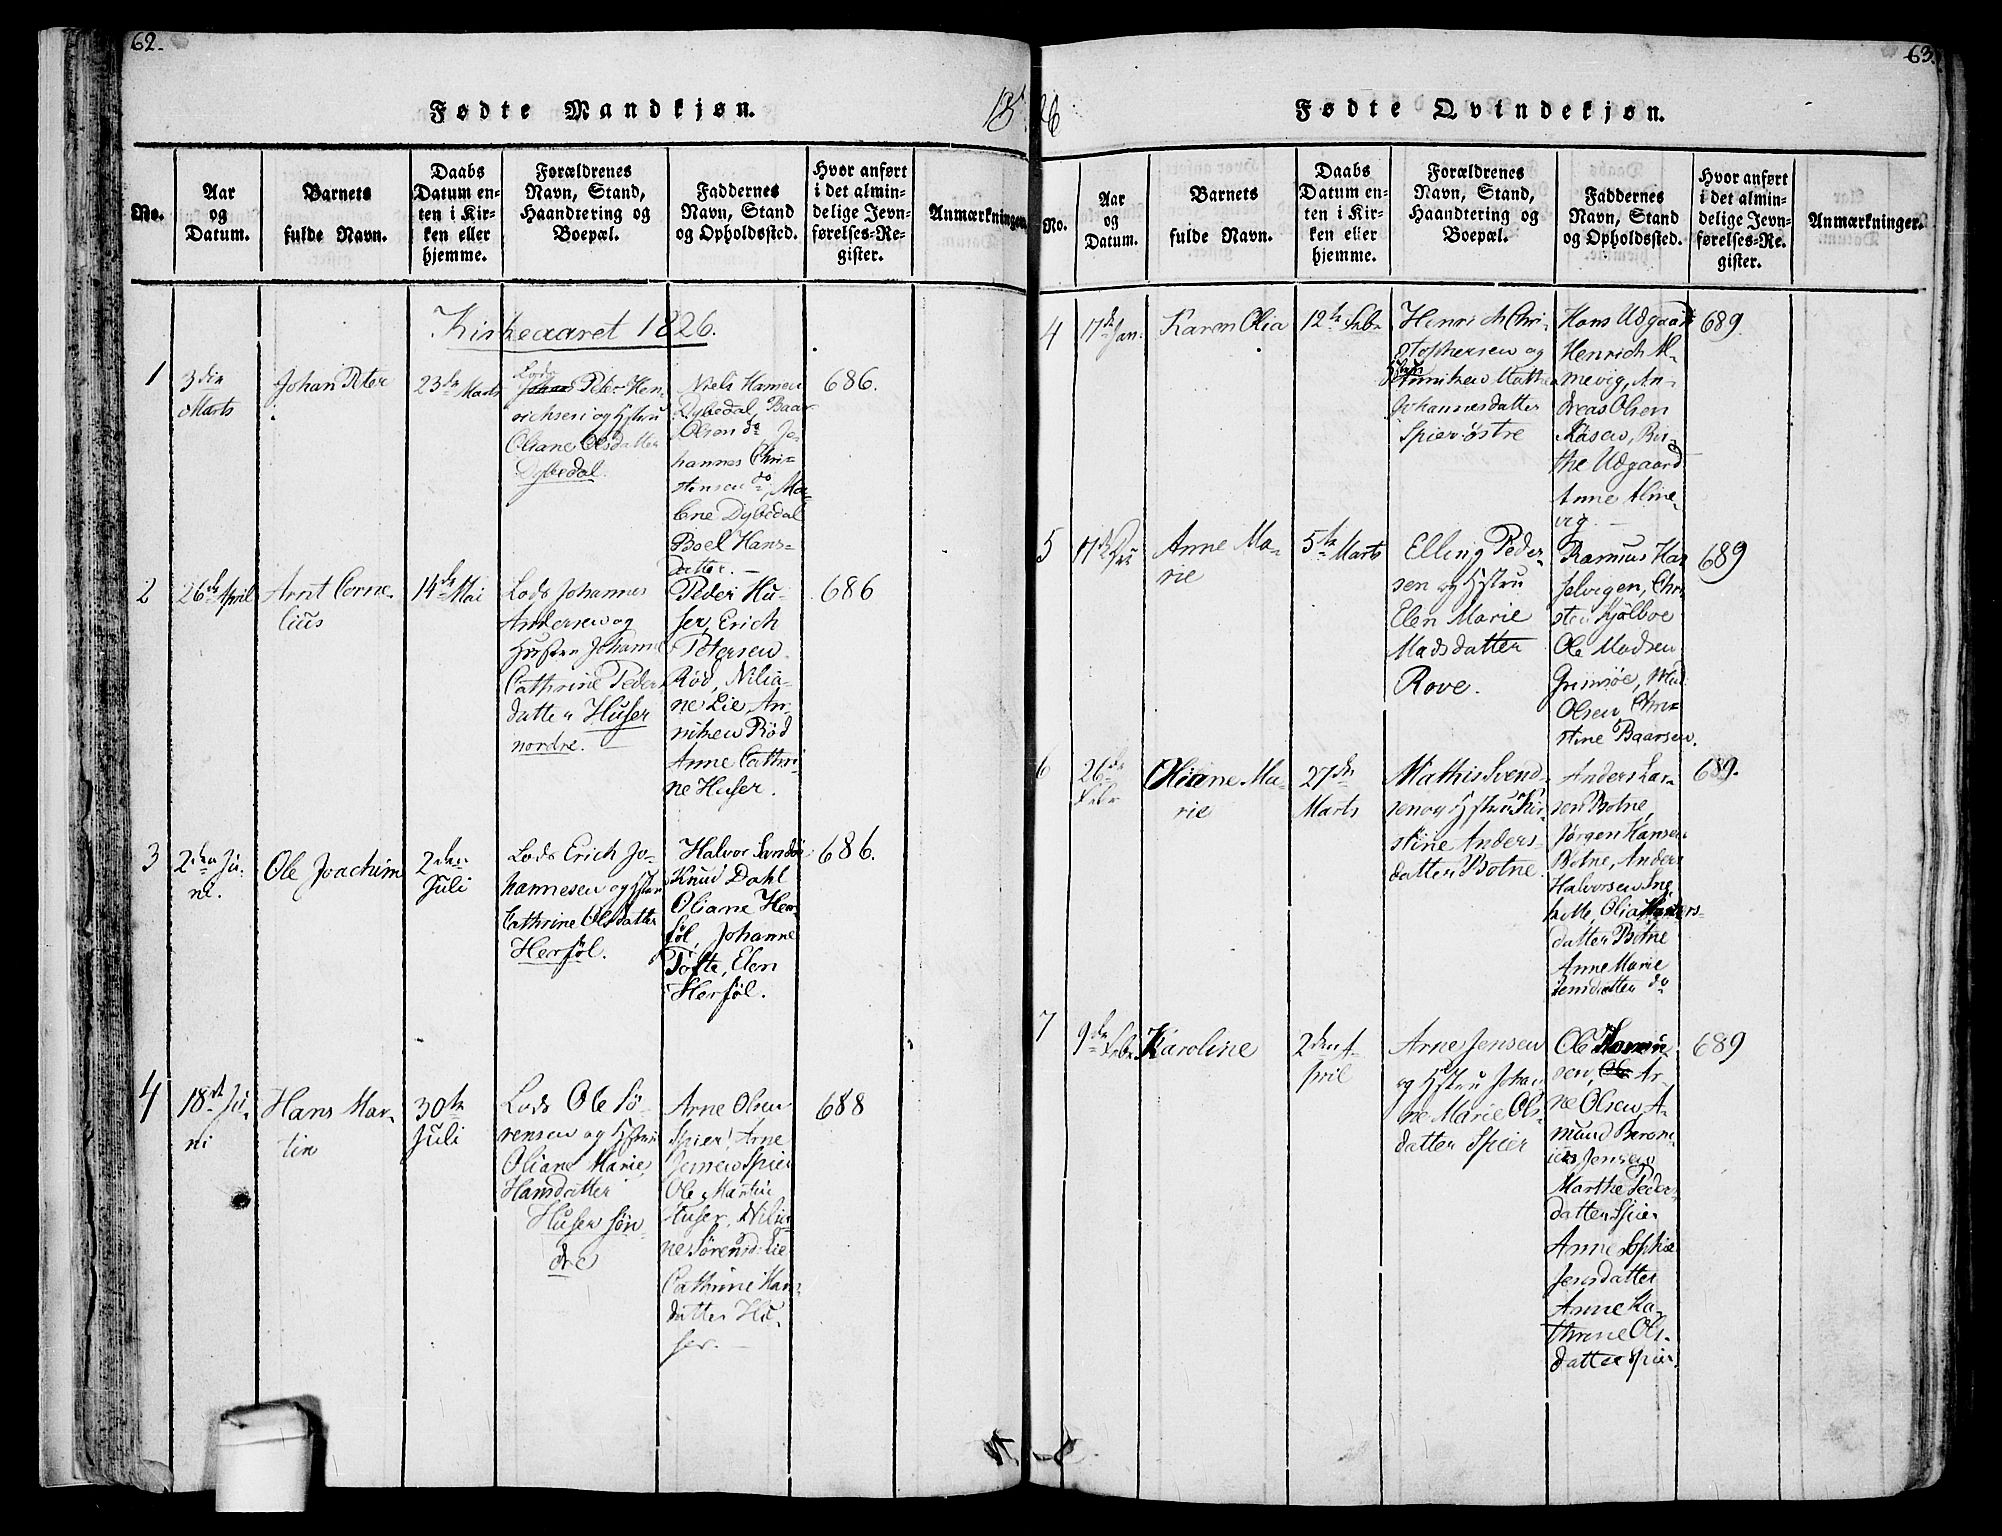 62.
Fødte Mandkjøn.
1826
No.
Aar
og
Datum.
Barnets
fulde Navn.
Daabs
Datum en-
ten i Kir-
ken eller
hjemme.
Forældrenes
Navn, Stand,
Haandtering og
Boepæl.
Faddernes
Navn, Stand
og Opholdssted.
Hvor anført
i det almin-
delige Jevn-
førelses-Re-
gister.
Anmærkninger
Kirkeaaret 1826.
1
3die
Marts
Johan Peter
23de Marts
Lods
Peter Hen-
richsen og Hstru
Oliane Olsdatter
Dybedal.
Niels Hansen
Dybedal, Baar
Olsen do, Jo-
hannes Chri-
stensen do, Ma-
lene Dybedal
Boel Hans-
datter.
686.
2
26de April
Arnt Corne-
lius
14de Mai
Lods Johannes
Andersen og
Hustru Johanne
Cathrine Peders
datter Huser
nordre.
Peder Hu-
ser, Erich
Petersen
Rød, Nilia-
ne Lie, An-
niken Rød
Anne Cathri-
ne Huser.
686
3
2den Ju-
ni.
Ole Joachim
2den
Juli
Lods Erich Jo-
hannesen og Hstru
Cathrine Olsdatter
Herføl.
Halvor Sandøe
Knud Dahl
Oliane Her-
føl, Johanne
Tofte, Elen
Herføl.
686.
4
18de Ju-
ni
Hans Mar-
tin
30te
Juli
Lods Ole Sø-
rensen og Hstru
Oliane Marie
Hansdatter
Huser søn
dre
Arne Olsen
Spier, Arne
Jensen Spier
Ole Martin
Huser, Nilia-
ne Sørensd: Lie
Cathrine Hans
datter Hu-
ser.
688
63.
Fødte Qvindekjøn.
No.
Aar
og
Datum.
Barnets
fulde Navn.
Daabs
Datum en-
ten i Kir-
ken eller
hjemme.
Forældrenes
Navn, Stand,
Haandtering og
Boepæl.
Faddernes
Navn, Stand
og Opholdssted.
Hvor anført
i det almin-
delige Jevn-
førelses-Re-
gister.
Anmærkninger.
4
17de Jan.
Karen Olia
12te Febr
Henrich Chri-
stophersen og
Hstru
Anniken Mathea
Johannesdatter
Spier østre
Hans Udgaard
Henrich Al-
mevig, An-
dreas Olsen
Kasen, Bir-
the Udgaard
Anne Alme-
vig
689.
5
17de
Anne Ma-
rie
5te Marts
Elling Peder
sen og Hstru
Elen Marie
Madsdatter
Rove.
Rasmus Har
Chri
sten Kjølboe
Ole Madsen
Grimsøe, Mad
Olsen, Chri-
stine Baarsen.
689
6
26de
Febr
Oliane Ma-
rie
27de
Marts
Mathis Svend-
sen og Hstru Kir-
stine Anders-
datter Botne.
Anders Lar-
sen Botne,
Jørgen Hansen
Botne, Anders
Halvorsen Ing
Olia Anders-
datter Botne
Anne Marie
Jensdatter do
689.
7
9de Febr.
Karoline
2den A-
pril
Arne Jensen
og Hstru Johan
ne Marie Ols
datter Spier
Ole
sen, Ar-
ne Olsen A-
mund
Jensen
Marthe Peders
datter Spier
Anne Sophie
Jensdatter
Anne Ka-
thrine Ols-
datter Spier.
689